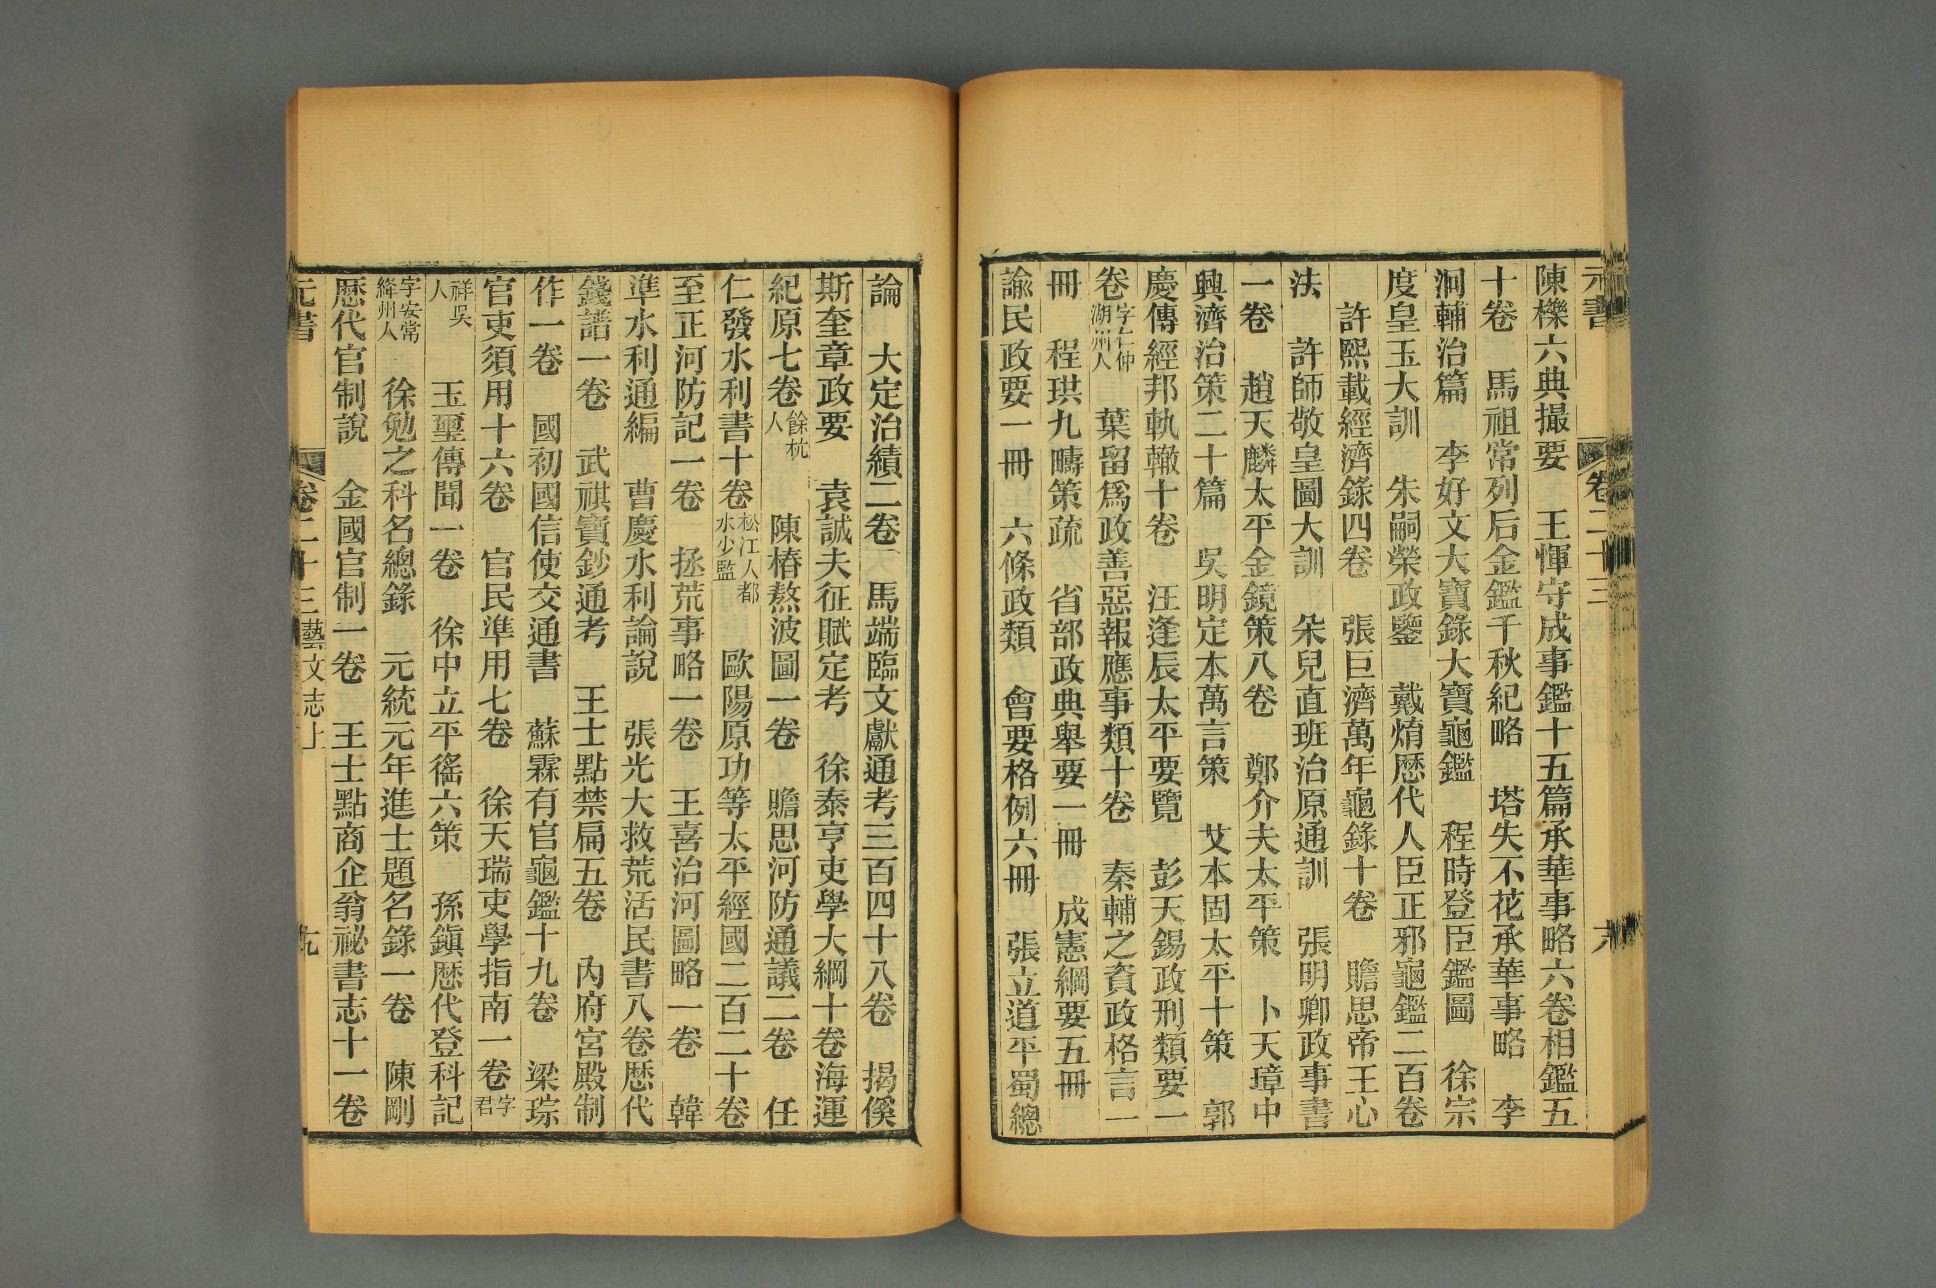 元書 卷二十三
陳櫟六典撮要 王惲守成事鑑十五篇承華事略六卷相鑑五
十卷 馬祖常列后金鑑千秋紀略 塔失不花承華事略 李
洞輔治篇 李好文大寶錄大寶龜鑑 程時登臣鑑圖 徐宗
度皇王大訓 朱嗣榮政鑒 戴焴歷代人臣正邪龜鑑二百卷
許熙載經濟錄四卷 張巨濟萬年龜錄十卷 贍思帝王心
法 許師敬皇圖大訓 朵兒直班治原通訓 張明卿政事書
一卷 趙天麟太平金鏡策八卷 鄭介夫太平策 卜天璋中
興濟治策二十篇 吳明定本萬言策 艾本固太平十策 郭
慶傳經邦軌轍十卷 汪逢辰太平要覽 彭天錫政刑類要一
卷字仁仲湖州人 葉留爲政善惡報應事類十卷 秦輔之資政格言一
冊 程珙九疇策疏 省部政典舉要一冊 成憲綱要五冊
諭民政要一冊 六條政類 會要格例六冊 張立道平蜀總
論 大定治績二卷 馬端臨文獻通考三百四十八卷 揭傒
斯奎章政要 袁誠夫征賦定考 徐泰亨吏學大綱十卷海運
紀原七卷餘杭人 陳椿熬波圖一卷 贍思河防通議二卷 任
仁發水利書十卷松江人都水少監 歐陽原功等太平經國二百二十卷
至正河防記一卷 拯荒事略一卷 王喜治河圖略一卷 韓
準水利通編 曹慶水利論說 張光大救荒活民書八卷歷代
錢譜一卷 武祺寶鈔通考 王士點禁扁五卷 內府宮殿制
作一卷 國初國信使交通書 蘇霖有官龜鑑十九卷 梁琮
官吏須用十六卷 官民準用七卷 徐天瑞吏學指南一卷字君
祥吳人 玉璽傳聞一卷 徐中立平徭六策 孫鎭歷代登科記
字安常絳州人 徐勉之科名總錄 元統元年進士題名錄一卷 陳剛
歷代官制說 金國官制一卷 王士點商企翁祕書志十一卷
元書 卷二十三 藝文志上 九